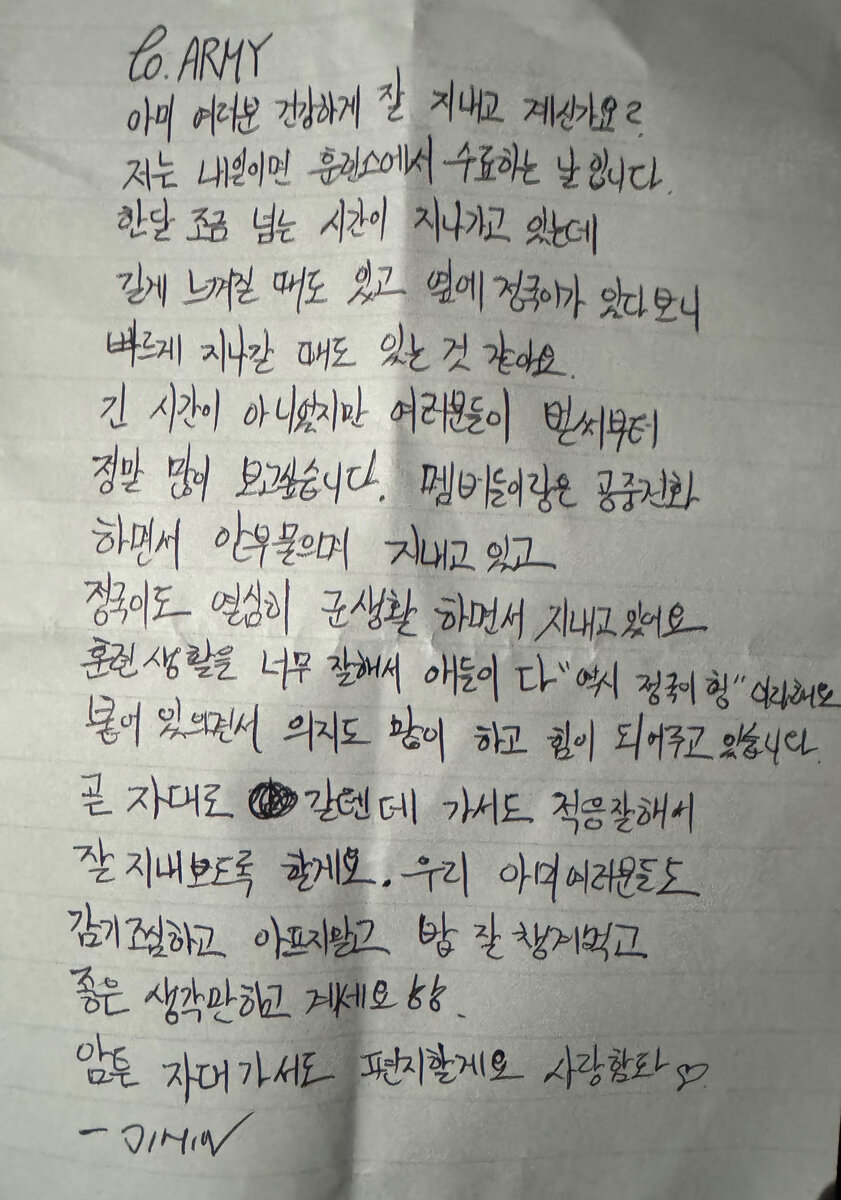 To. ARMY
아미 여러분 건강하게 잘 지내고 계신가요?
저는 내일이면 훈련소에서 수료하는 날입니다.
한달 조금 넘는 시간이 지나가고 있는데
길게 느껴질 때도 있고 옆에 정국이가 있다보니
빠르게 지나갈 때도 있는 것 같아요.
긴 시간이 아니였지만 여러분들이 벌써부터
정말 많이 보고싶습니다. 멤버들이랑은 공중전화
하면서 안부물으며 지내고 있고
정국이도 열심히 군생활 하면서 지내고있어요
훈련 생활을 너무 잘해서 애들이 다 "역시 정국이 형" 이라해요
붙어 있으면서 의지도 많이 하고 힘이 되어주고 있습니다.
곧 자대로 갈텐데 가서도 적응잘해서
잘 지내보도록 할게요. 우리 아미여러분들도
감기조심하고 아프지말고 밥 잘 챙겨먹고
좋은 생각만하고 계세요
암튼 자대가서도 편지할게요 사랑함돠♡
- JIMIN